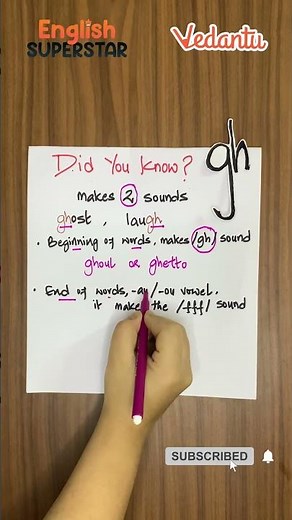 English
SUPERSTAR
Vedantu
gh
Did You Know?
makes 2 sounds
ghost, laugh
• Beginning of words, makes /gh/ sound
ghoul or ghetto
• End of words, -au/-ou vowel.
it makes the /fff/ sound
SUBSCRIBED